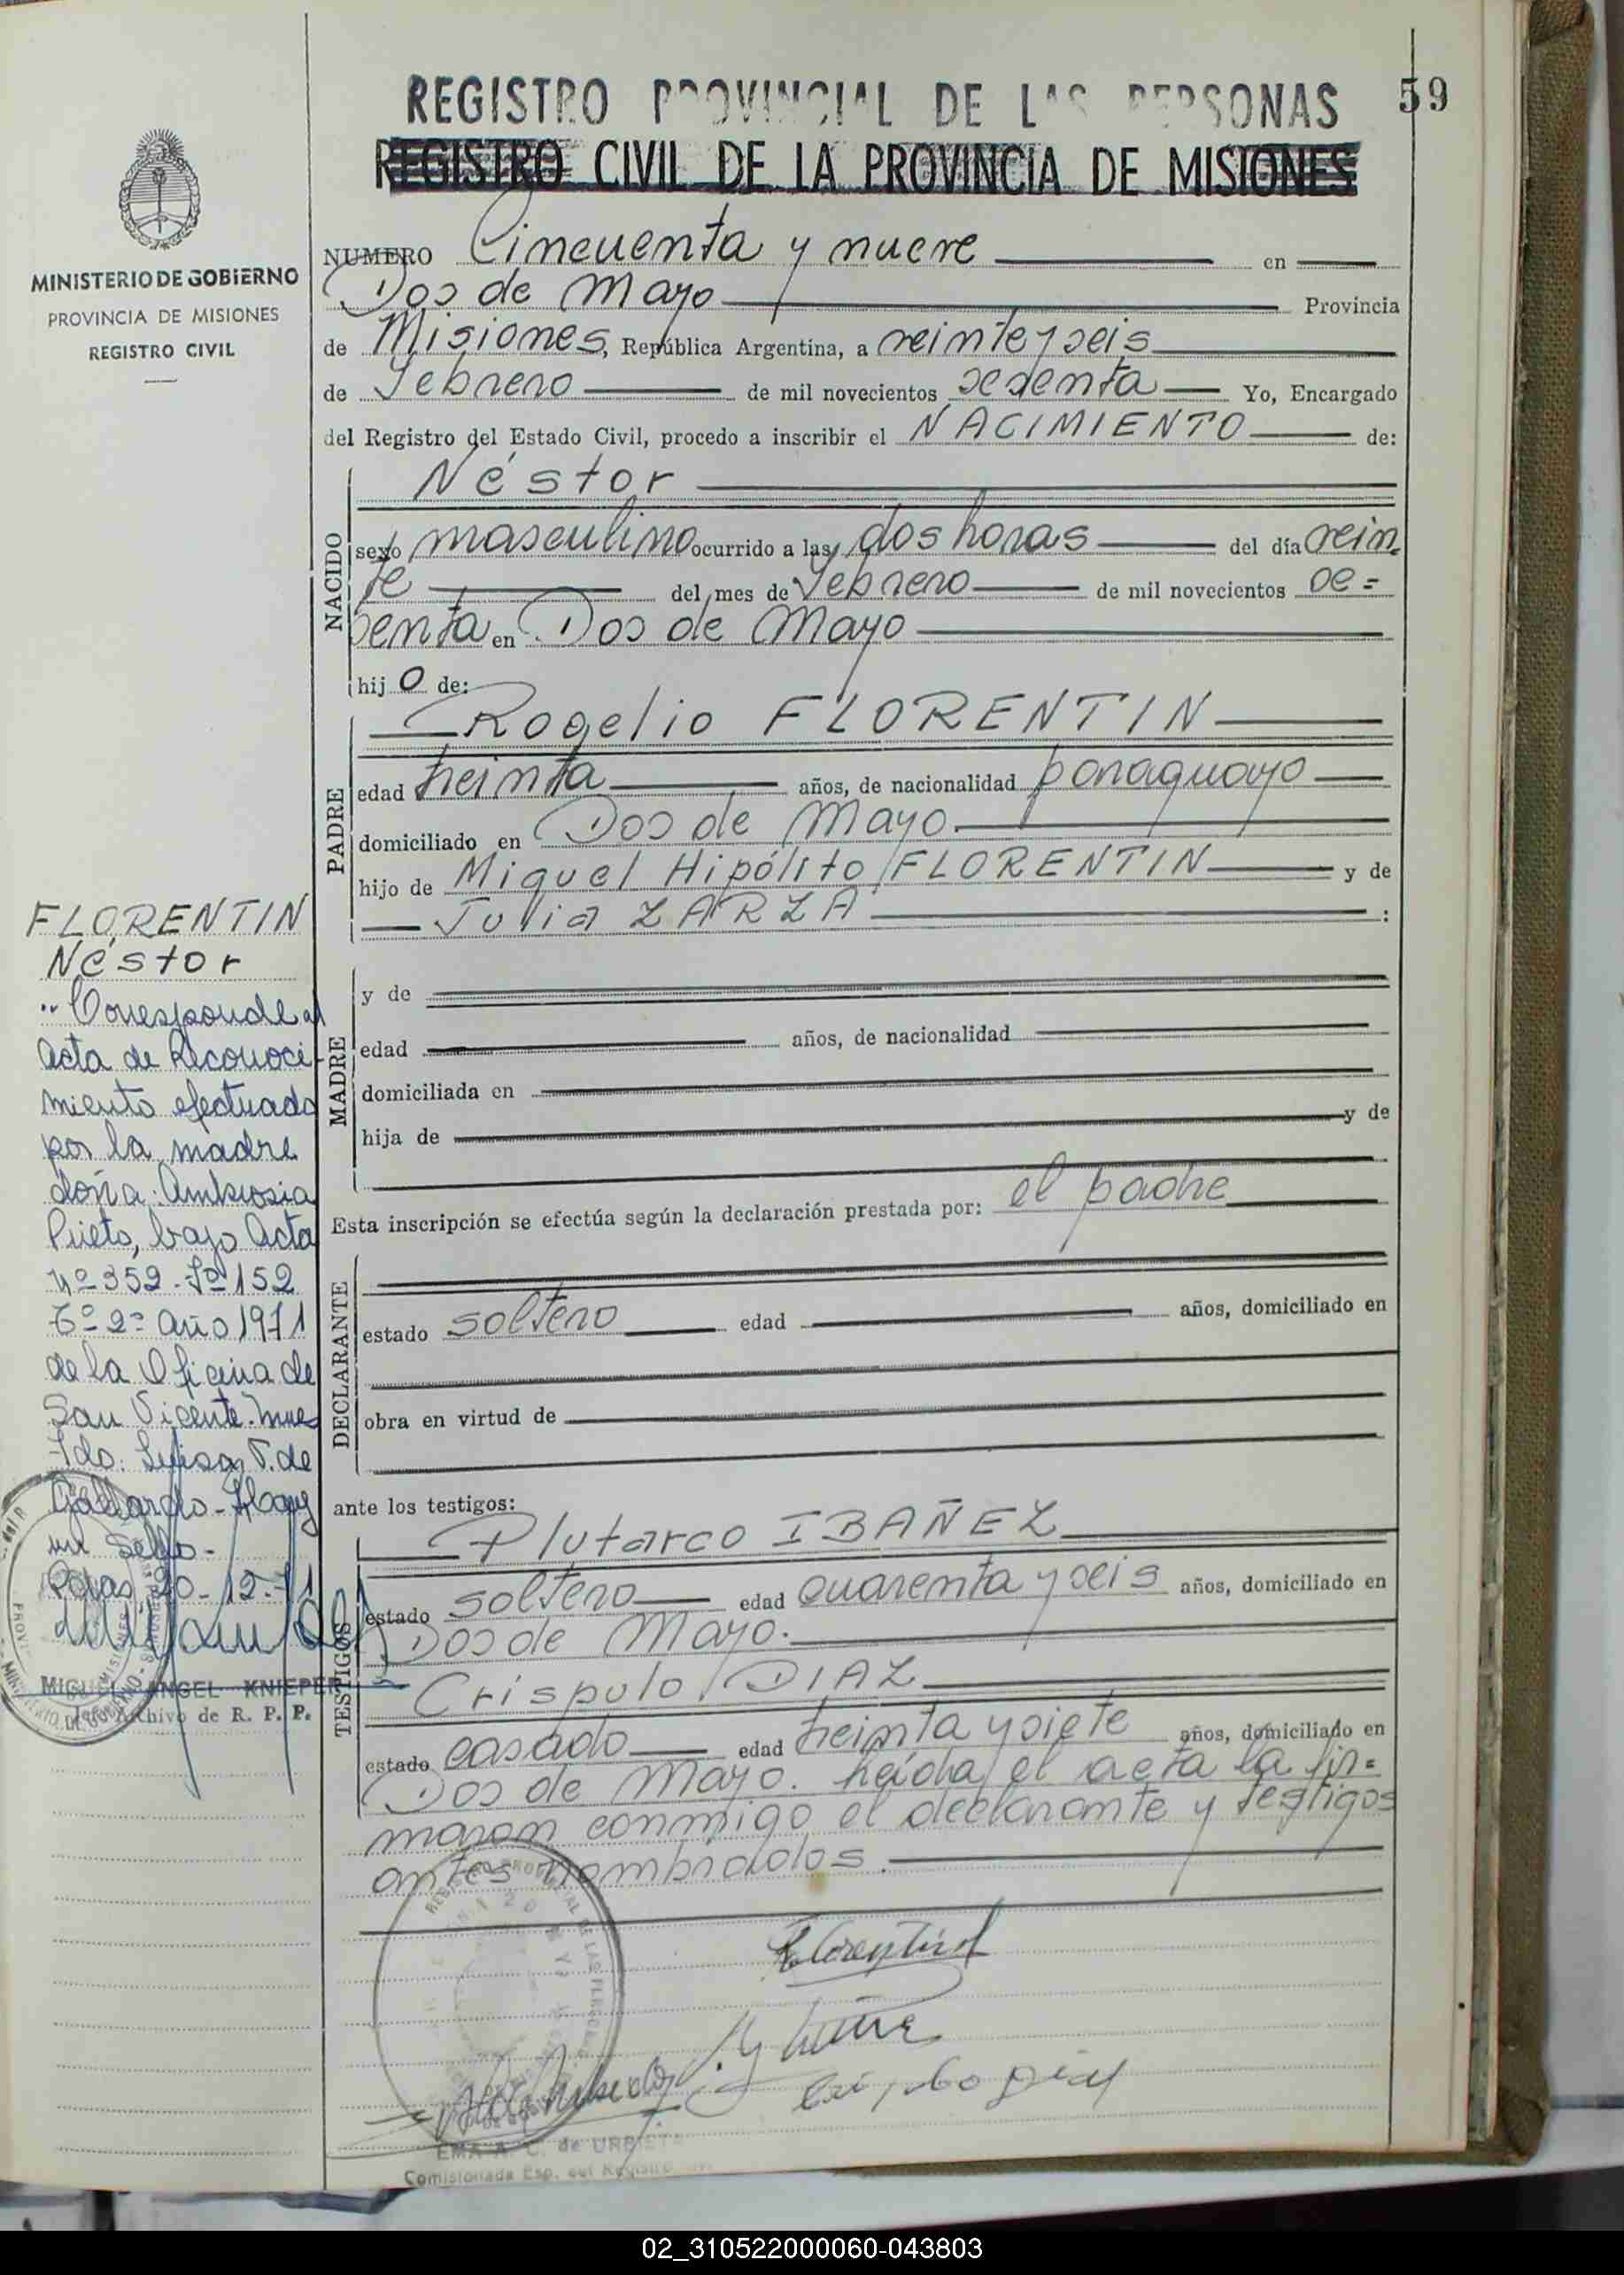 59
REGISTRO PROVINCIAL DE LAS PERSONAS
REGISTRO CIVIL DE LA PROVINCIA DE MISIONES
MINISTERIO DE GOBIERNO
PROVINCIA DE MISIONES
REGISTRO CIVIL
NUMERO Cincuenta y nueve en
Dos de Mayo Provincia
de Misiones, República Argentina, a veinte y seis
de Febrero de mil novecientos setenta Yo, Encargado
del Registro del Estado Civil, procedo a inscribir el NACIMIENTO de:
NACIDO
Néstor
sexo masculino ocurrido a las dos horas del día vein
te del mes de Febrero de mil novecientos se=
tenta en Dos de Mayo
hijo de:
PADRE
Rogelio FLORENTIN
edad treinta años, de nacionalidad paraguayo
domiciliado en Dos de Mayo.
hijo de Miguel Hipólito FLORENTIN y de
Julia ZARZA :
MADRE
y de
edad años, de nacionalidad
domiciliada en
hija de y de
Esta inscripción se efectúa según la declaración prestada por: el padre
DECLARANTE
estado soltero edad años, domiciliado en
obra en virtud de
ante los testigos:
TESTIGOS
Plutarco IBAÑEZ
estado soltero edad cuarenta y seis años, domiciliado en
Dos de Mayo.
Críspulo DIAZ
estado casado edad treinta y siete años, domiciliado en
Dos de Mayo. Leída el acta la fir=
maron conmigo el declarante y testigos
antes nombrados.
FLORENTIN
Néstor
Corresponde al
Acta de Reconoci-
miento efectuado
por la madre
doña: Ambrosia
Prieto, bajo Acta
nº 352 - Fº 152
Tº 2º Año 1971
de la Oficina de
San Vicente. Mnes
Fdo: Luisa V. de
Gallardo - Hay
un Sello -
Pdas, 20-12-71
MIGUEL ANGEL KNIEPER
Jefe Archivo de R. P. P.
Florentin
Críspulo Díaz
EMA A. C. de URBIETA
Comisionada Esp. del Registro
02_310522000060-043803